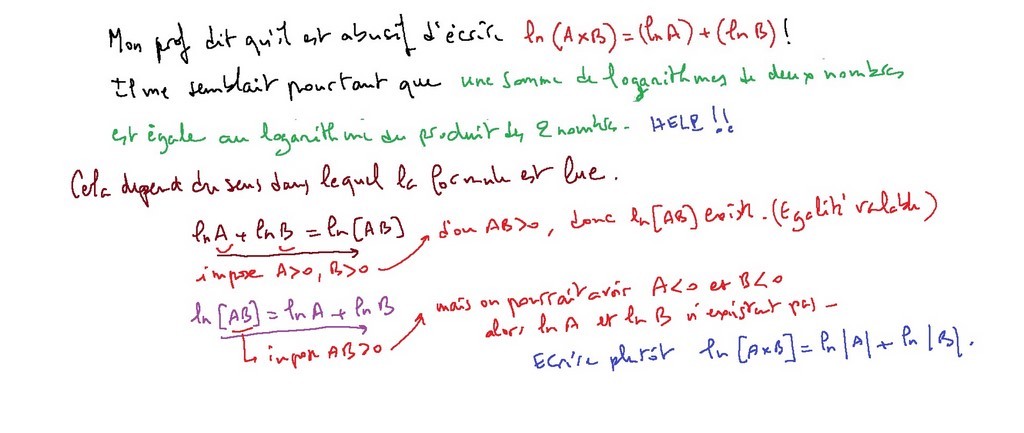 Mon prof dit qu'il est abusif d'écrire ln (A×B) = (ln A) + (ln B) !
Il me semblait pourtant que une somme de logarithmes de deux nombres
est égale au logarithme du produit des 2 nombres. HELP !!
Cela dépend du sens dans lequel la formule est lue.
ln A + ln B = ln [AB] d'où AB>0, donc ln [AB] existe. (Egalité valable)
impose A>0, B>0
ln [AB] = ln A + ln B mais on pourrait avoir A<0 et B<0
alors ln A et ln B n'existent pas –
impose AB>0
Ecrire plutôt ln [A×B] = ln |A| + ln |B|.